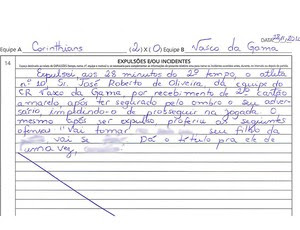 Equipe A Corinthians (2) X (0) Equipe B Vasco da Gama
14 EXPULSÕES E/OU INCIDENTES
Expulsei aos 28 minutos do 2º tempo, o atleta
nº 10 Sr. José Roberto de Oliveira, da equipe do
CR Vasco da Gama, por recebimento do 2º cartão
amarelo, após ter segurado pelo ombro o seu adver
sário, impedindo-o de prosseguir na jogada. O
mesmo após ser expulso, proferiu as seguintes
ofensas "Vai tomar seu filho da
vai se Dá o título pra ele de
uma vez,